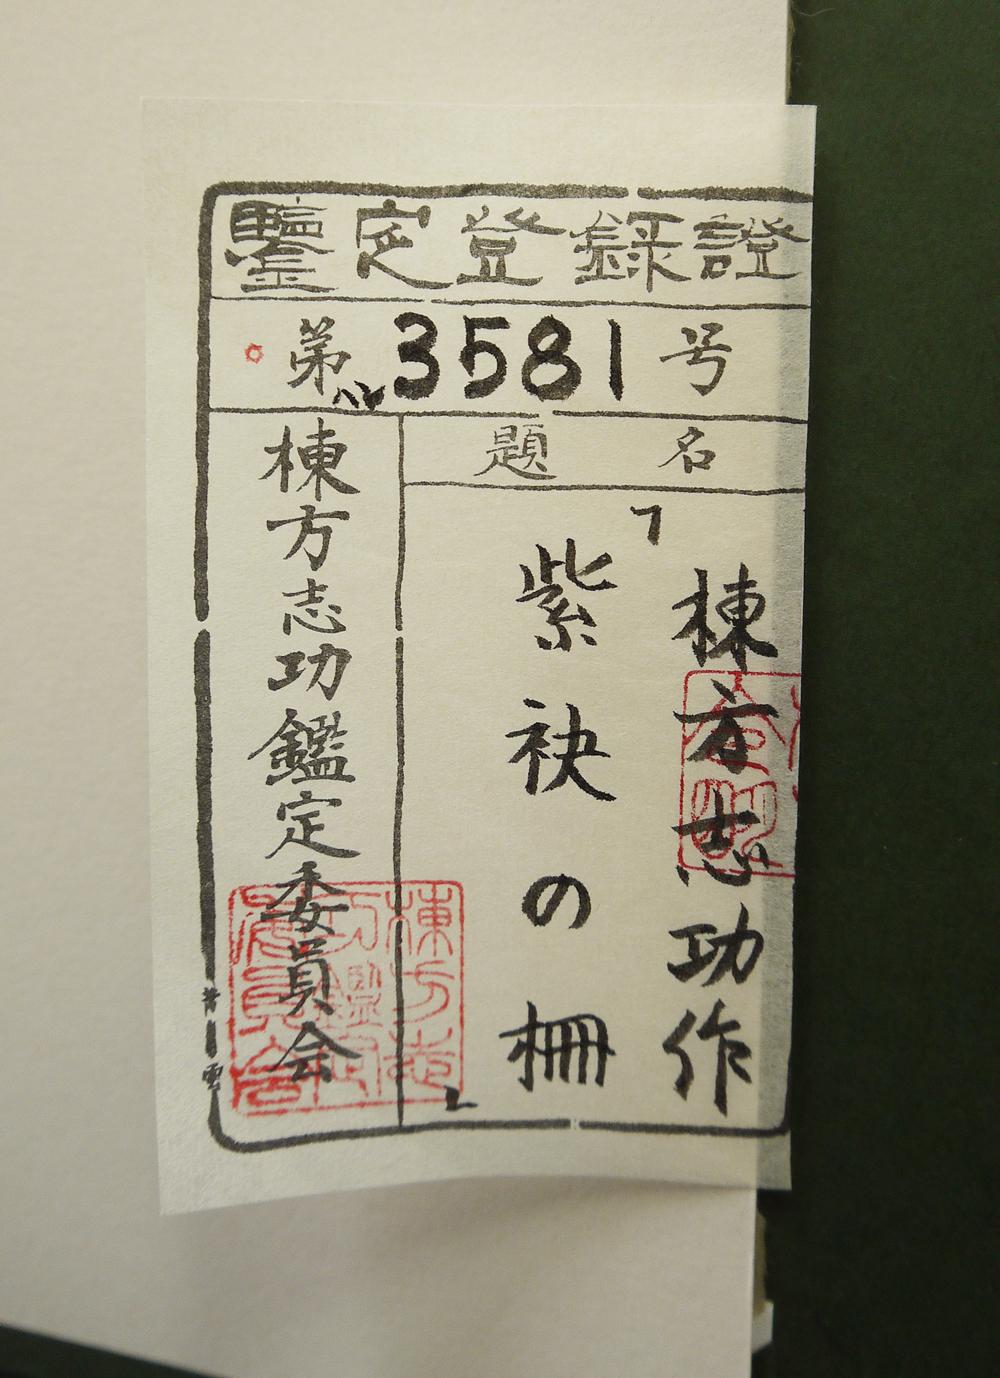 鑒定登録證
第3581号
題名
棟方志功作
「紫袂の柵」
棟方志功鑑定委員会
棟方志功鑑定委員会